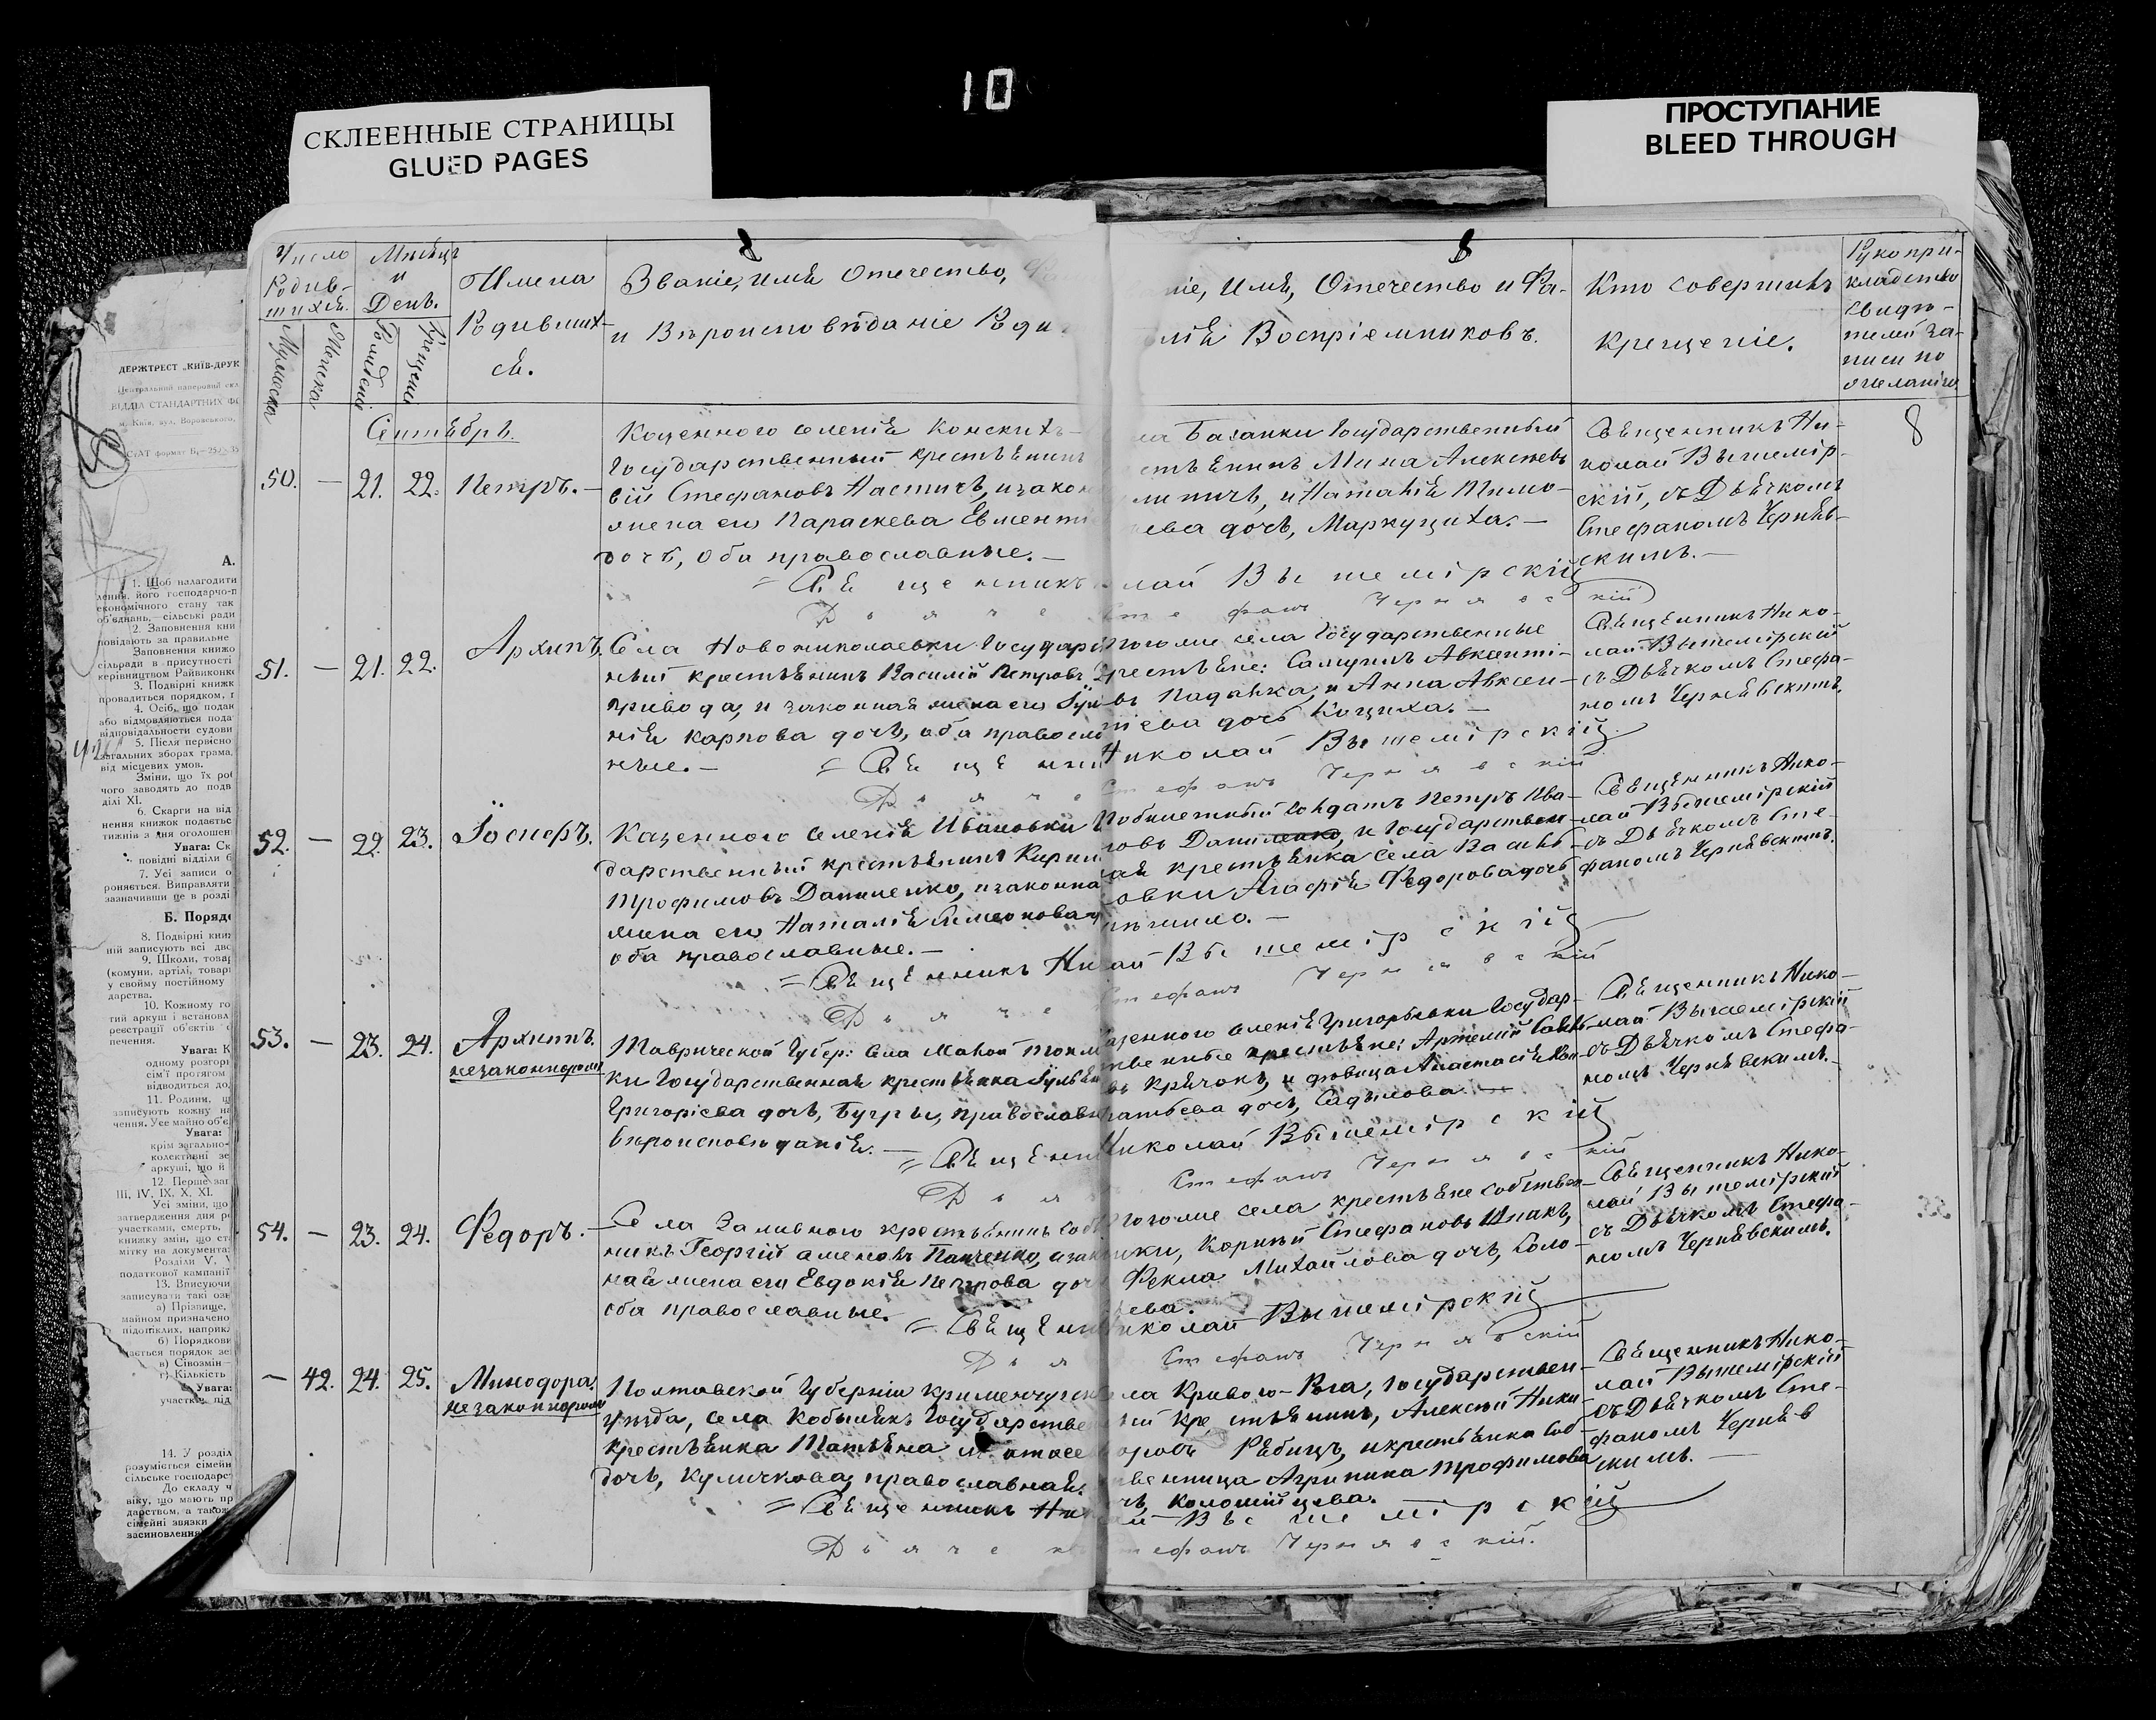 10
СКЛЕЕННЫЕ СТРАНИЦЫ
GLUED PAGES
ПРОСТУПАНИЕ
BLEED THROUGH
ДЕРЖТРЕСТ „КИЇВ-ДРУК
ВІДДІЛ СТАНДАРТНИХ
А.
1. Щоб налагодити
економічного стану так
об'єднань,—сільські ради
2. Заповнення кни
повідають за правильне
Заповнення книжо
сільради в присутності
керівництвом Райвиконк
3. Подвірні книжк
провадиться порядком,
4. Осіб, що подан
або відмовляються пода
відповідальности судови
5. Після первісно
загальних зборах грома,
від місцевих умов.
Зміни, що їх роб
чого заводять до подв
ділі XI.
6. Скарги на від
нення книжок подаєтьс
тижнів з дня оголошен
Увага: Ск
повідні відділи б
7. Усі записи о
роняється. Виправляти
зазначивши це в розді
Б. Поряд
8. Подвірні кни
ній записують всі дво
9. Школи, товар
(комуни, артілі, товар
у свойму постійному
дарства.
10. Кожному го
тий аркуш і встановл
реєстрації об'єктів
печення.
Увага: К
одному розгорі
сім'ї протягом
відводиться до
11. Родини,
записують кожну на
чення. Усе майно об'є
Увага:
крім загально-
колективні зе
аркуші, що й
12. Перше зап
III, IV, IX, X, XI.
Усі зміни, що
затвердження дня р
участками, смерть,
книжку змін, що ст
мітку на документа
Розділи V,
податкової кампанії
13. Вписуючи
записувати такі озн
а) Прізвище,
майном призначено
підпотклих, наприк
б) Порядкови
дається порядок зе
в) Сівозмін
г) Кількість
Увага:
участки, під
14. У розділ
розуміється сімейн
сільське господарс
До складу ч
віку, що мають пр
дарством, а також
сімейні звязки
засиновлення
8
Число Родив-шихся.
Мѣсяцъ и День.
Мужеска
Женска
Рожденія
Крещенія
Имена Родивших-ся.
Званіе, имя Отечество,
и Вѣроисповѣданіе Роди
8
ніе, Имя, Отечество и Фа-
лія Воспріемниковъ.
Кто совершилъ
крещеніе.
Рукопри-
кладство
свидѣ-
телей за-
писи по
желанію
8
Сентябрь.
50. — 21. 22. Петръ.
Казенного селенія Конскихъ
Государственный крестьянинъ
вій Стефановъ Настичъ, изакон
жена его Параскева Евменти
дочь, оба православные.—
Базанки Государственный
стьянинъ Мина Алексѣевъ
и Наталія Тимо-
ева дочь, Маркуциха.—
Священникъ Ни-
колай Вышемір-
скій, съ Дьячкомъ
Стефаномъ Черняв-
скимъ.—
= Священникъ лай Вышемірскій
Дьяче Стефанъ Чернявскій
51. — 21. 22. Архипъ.
Села Новониколаевки Государс
ный крестьянинъ Василій Петровъ
Привода, и законная жена его Іул
нія Карпова дочь, оба правосла
ные.—
Тогоже села Государственные
крестьяне: Самуилъ Авксенті-
въ Падалка, и Анна Авксен-
тіева дочь Коциха.—
Священникъ Нико-
лай Вышемірскій
съ Дьячкомъ Стефа-
номъ Чернявскимъ.
= Священни Николай Вышемірскій
Дьяче Стефанъ Чернявскій
52. — 22. 23. Іосифъ.
Казенного Селенія Ивановки
дарственный крестьянинъ Кирил
Трофимовъ Даниленко, изаконна
жена его Наталія Симеонова
оба православные.—
Петръ Ива-
новъ Даниленко, и Государствен-
ая крестьянка села Василь-
овки Агафія Федорова дочь
Священникъ Нико-
лай Вышемірскій
съ Дьячкомъ Сте-
фаномъ Чернявскимъ.
= Священникъ Ни лай Вышемірскій
Дьяче Стефанъ Чернявскій
53. — 23. 24. Архипъ.
незаконнорож
Таврической Губер: Села Малой Токм
ки Государственная крестьянка Іульян
Григоріева дочь, Бугры, православн
вѣроисповѣданія.—
азенного селенія Григорьевки Государ-
твенные крестьяне: Артемій Савв
въ Крячокъ, и дѣвица Анастасія
ратьева дочь, Садылова.—
Священникъ Нико-
лай Вышемірскій
съ Дьячкомъ Стефа-
номъ Чернявскимъ.—
= Священни Николай Вышемірскій
Дья Стефанъ Чернявскій
54. — 23. 24. Федоръ.
Села Заливного крестьянинъ соб
никъ Георгій аменовъ Панченко, изак
ная жена его Евдокія Петрова доч
оба православные.
Тогоже села крестьяне собствен-
ники, Корнѣй Стефановъ Шпакъ,
Фекла Михайлова дочь, Соло-
ева.
Священникъ Нико-
лай Вышемірскій
съ Дьячкомъ Стефа-
номъ Чернявскимъ.
= Священни Николай Вышемірскій
Дья Стефанъ Чернявскій
— 42. 24. 25. Минодора.
незаконнорож
Полтавской Губерніи Кременчугск
уѣзда, села Кобылякъ Государстве
крестьянка Татьяна
дочь, Куличкова, православная.
ла Кривого-Рога, Государствен-
ный крестьянинъ, Алексѣй Ники
оровъ Рябицъ, и крестьянка Соб-
ственница Агрипина Трофимова
чь, Коломійцева.
Священникъ Нико-
лай Вышемірскій
съ Дьячкомъ Сте-
фаномъ Черняв
скимъ.—
= Священникъ Ник ай Вышемірскій
Дьячекъ Стефанъ Чернявскій.